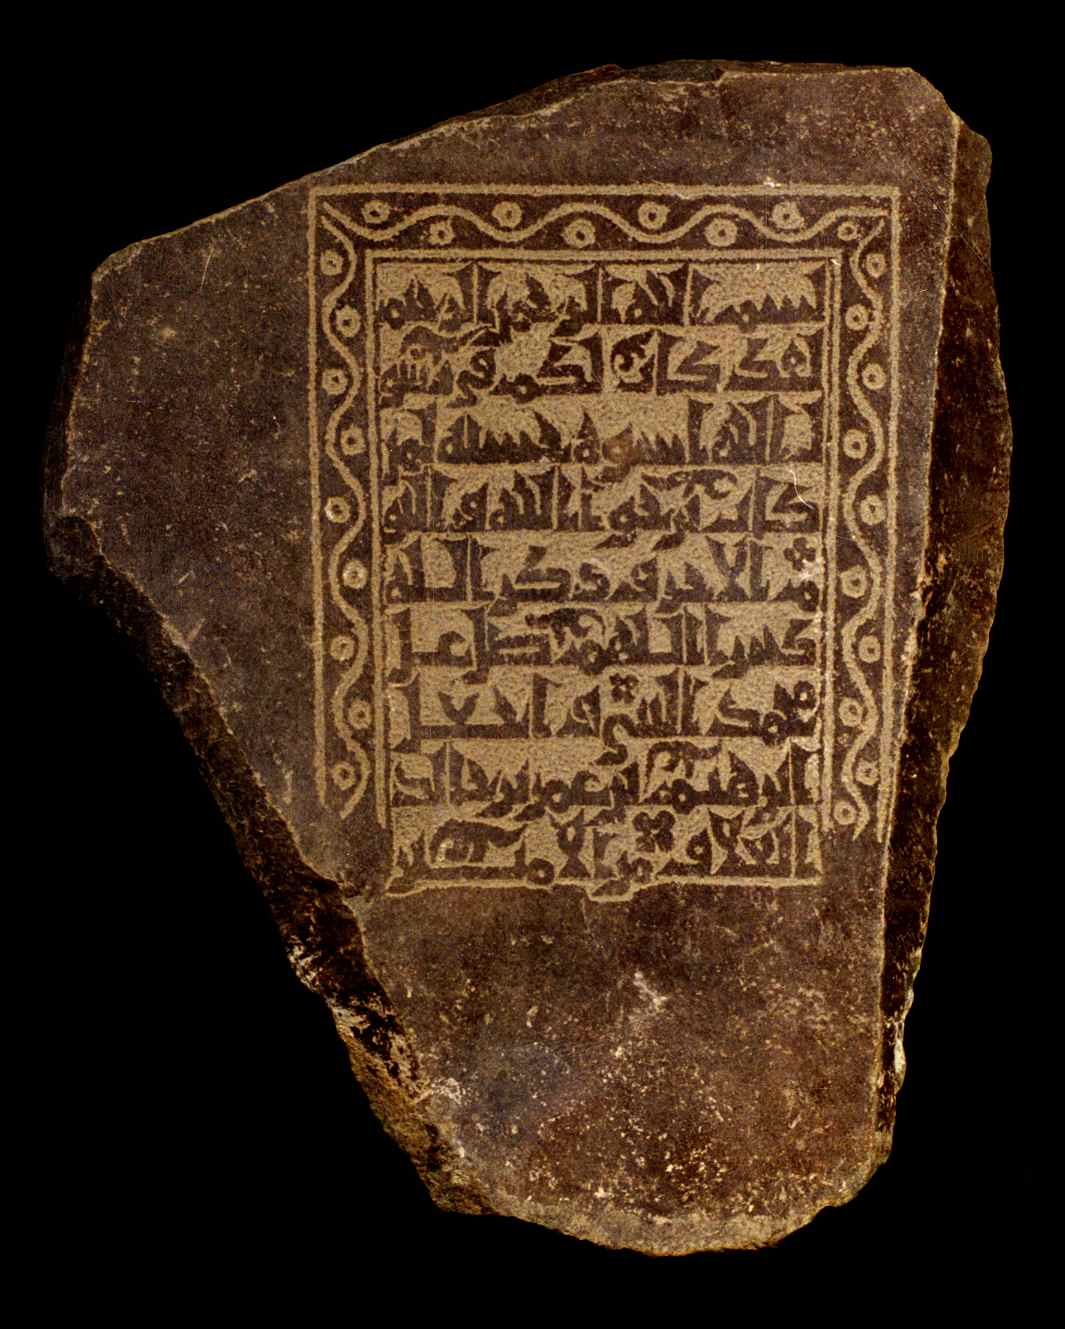 بسم الله الرحمن الرحيم
لقد كان لكم في رسول
الله اسوة حسنة لمن
كان يرجو الله واليو
م الاخر وذكر الله
كثيرا اللهم صل على
محمد النبي
ابرهيم بن عمر بن